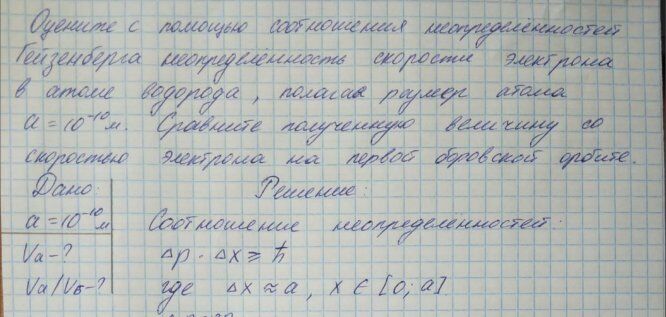 Оцените с помощью соотношения неопределенностей
Гейзенберга неопределенность скорости электрона
в атоме водорода, полагая размер атома
a = 10⁻¹⁰ м. Сравните полученную величину со
скоростью электрона на первой боровской орбите.
Дано: Решение:
a = 10⁻¹⁰ м Соотношение неопределенностей:
Va - ? Δp · Δx ≥ ħ
Va/Vб - ? где Δx ≈ a, x ∈ [0; a]